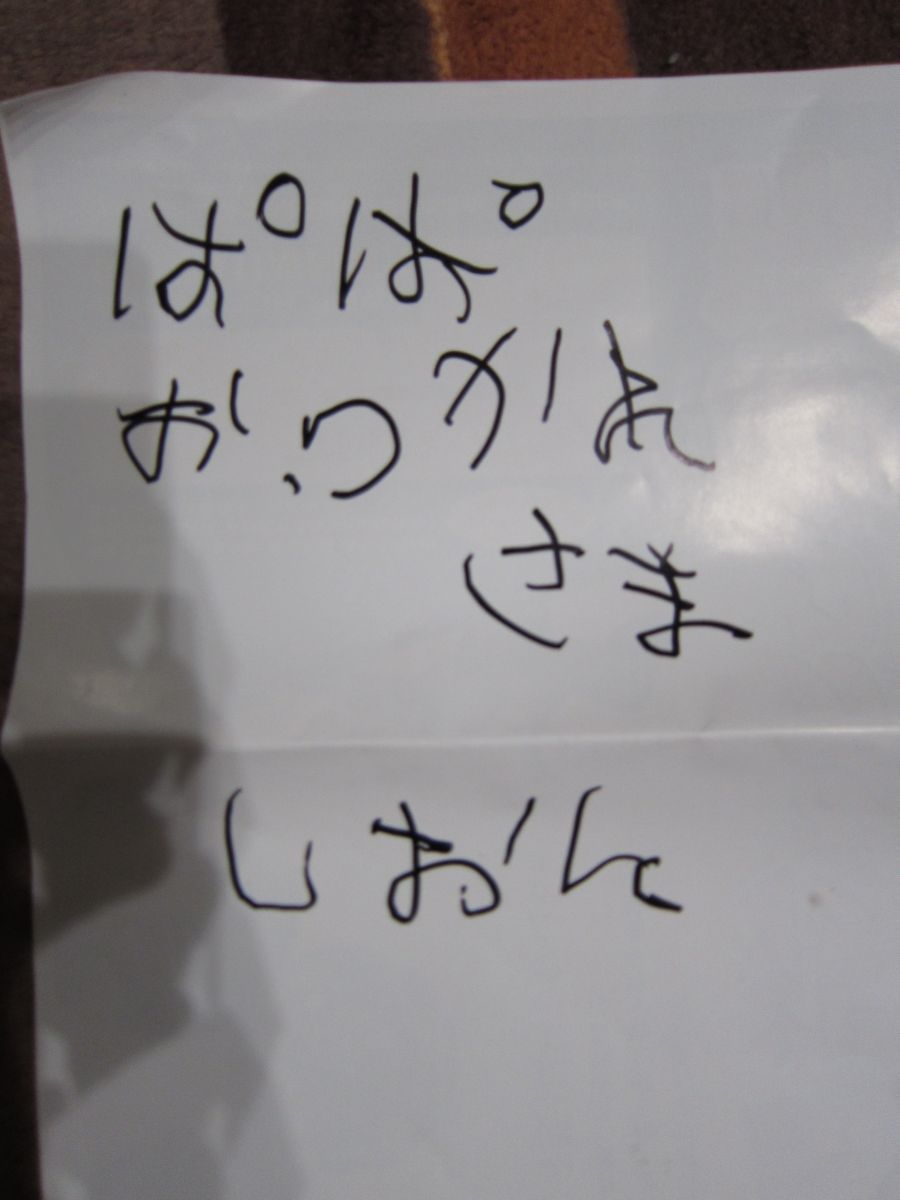 ぱぱ
おつかれ
さま
しおん